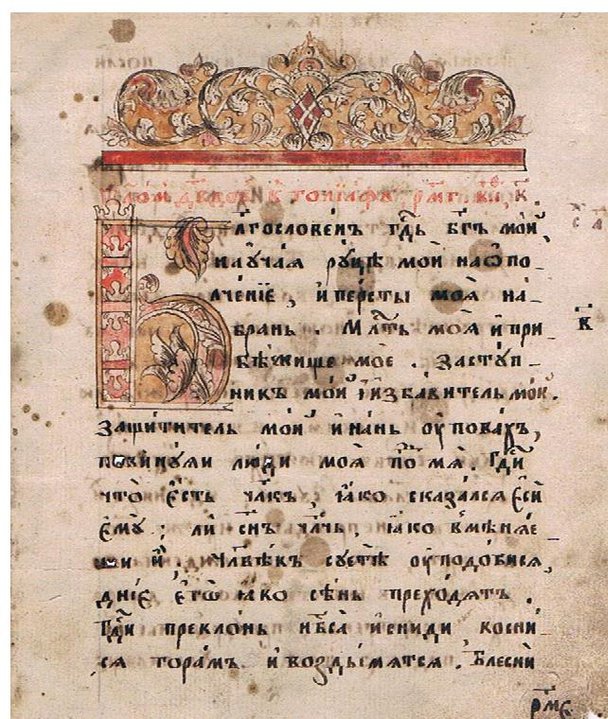 Благословенъ гдь бгъ мой
научая руцѣ мои наѡпо_
лченїе, и персты моѧ на_
брань. Млть моѧ и при_
бѣжище мое. Заступ_
никъ мой и избавитель мой.
Защититель мой и нань оуповахъ,
повинуѧи люди моѧ под мѧ. Гди
что есть члкъ, ꙗко сказалсѧ еси
ему; ли снъ члчь, ꙗко вмѣнѧе
ши и. Человѣкъ суетѣ оуподобисѧ,
днїе егѡ ꙗко сѣнь преходѧтъ.
Гди преклонь нбса и сниди, косни_
сѧ горамъ. и воздымѧтсѧ. Блесни
рме